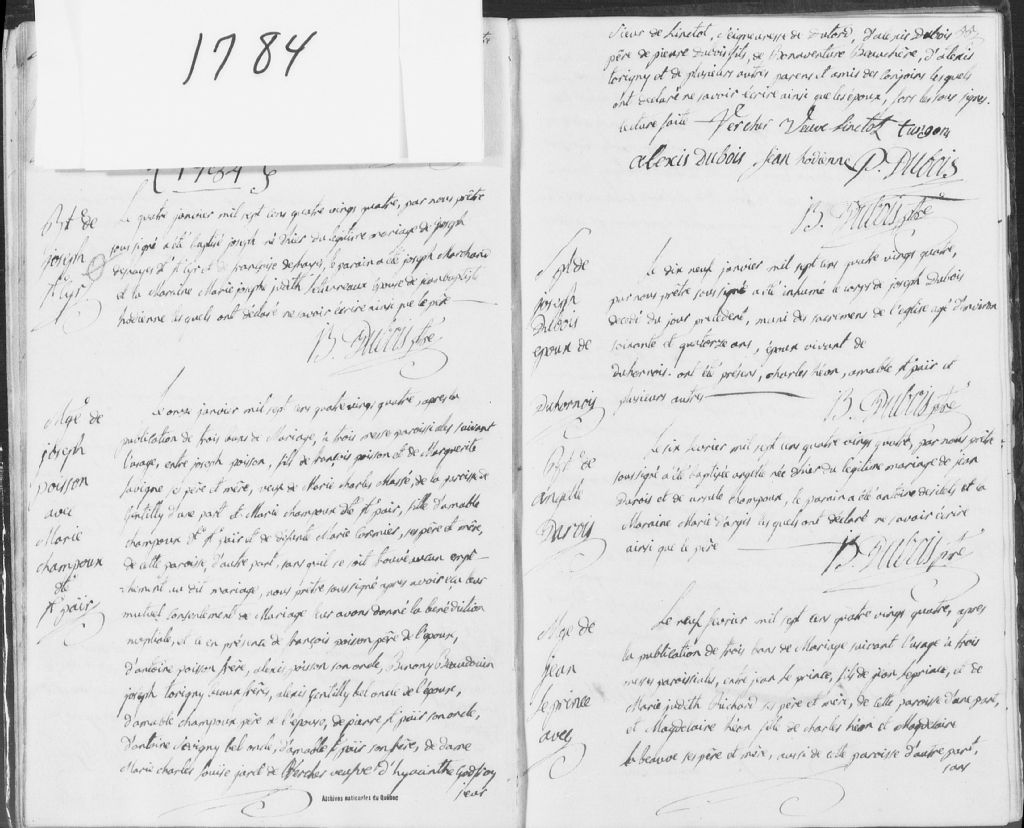 1784
{ 1784 }
Bt de
joseph
st Cyr
Le quatre janvier mil sept cens quatre vings quatre, par nous prêtre
soussigné a été baptisé joseph né d'hier du légitime mariage de joseph
deshayes dt st Cyr et de françoise deshayes, le parain a été joseph Marchand
et la Maraine Marie josephe judith épouse de jean baptiste
hodienne lesquels ont déclaré ne savoir écrire ainsi que le père
B. Dubois ptre
Mge de
joseph
poisson
avec
Marie
champoux
dt
st pair
Le onze janvier mil sept cens quatre vings quatre, après la
publication de trois bans de Mariage, à trois messe paroissiales suivant
l'usage, entre joseph poisson, fils de françois poisson et de Marguerite
lavigne ses père et mère, veuf de Marie charles Massé, de la paroisse de
Gentilly d'une part et Marie champoux dte st pair, fille d'amable
champoux dt st pair et de défunte Marie Cormier, ses père et mère,
de cette paroisse, d'autre part, sans qu'il se soit trouvé aucun empê-
chement au dit mariage, nous prêtre soussigné après avoir eu leur
mutuel Consentement de Mariage leur avons donné la bénédiction
nuptiale, et ce en présence de françois poisson père de l'époux,
d'antoine poisson frère, alexis poisson son oncle, Benony Beaudouin
joseph torigny beaux frères, alexis Gentilly bel oncle de l'époux,
d'amable champoux père de l'épouse, de pierre st pair son oncle,
d'antoine Sévigny bel oncle, d'amable st pair son frère, de dame
Marie charles louise jarel de Vercher veufve d'hyacinthe Godfroy
sieur
Archives nationales du Québec
Sieur de Linctot, seigneuresse de Dutord, d'alexis Dubois
père de pierre dubois fils, de Bonaventure Beauchêne, d'alexis
torigny et de plusieurs autres parens et amis des conjoins lesquels
ont déclaré ne savoir écrire ainsi que les époux, fors les sous signés.
lecture faite Vercher Veuve Linctot
alexis Dubois jean hodienne P. Dubois
B. Dubois ptre
Spt de
joseph
Dubois
epoux de
Duhornois
Le dix neuf janvier mil sept cens quatre vings quatre,
par nous prêtre soussigné a été inhumé le corps de joseph Dubois
décédé du jour précédent, muni des sacremens de l'église agé d'environ
soixante et quatorze ans, époux vivant de
duhornois. ont été présens, charles héon, amable st pair et
plusieurs autres
B. Dubois ptre
Bt de
angelle
Darois
Le six fevrier mil sept cens quatre vings quatre, par nous prêtre
soussigné a été baptisée angelle née d'hier du légitime mariage de jean
Darois et de ursule champoux, le parain a été antoine desilets et la
Maraine Marie d'argis lesquels ont déclaré ne savoir écrire
ainsi que le père
B. Dubois ptre
Mge de
jean
le prince
avec
Le neuf fevrier mil sept cens quatre vings quatre, après
la publication de trois bans de Mariage suivant l'usage à trois
messes paroissiales, entre jean le prince, fils de jean le prince, et de
Marie judith Richard ses père et mère, de cette paroisse d'une part,
et Magdelaine héon fille de charles héon et Magdelaine
labauve ses père et mère, aussi de cette paroisse d'autre part,
sans